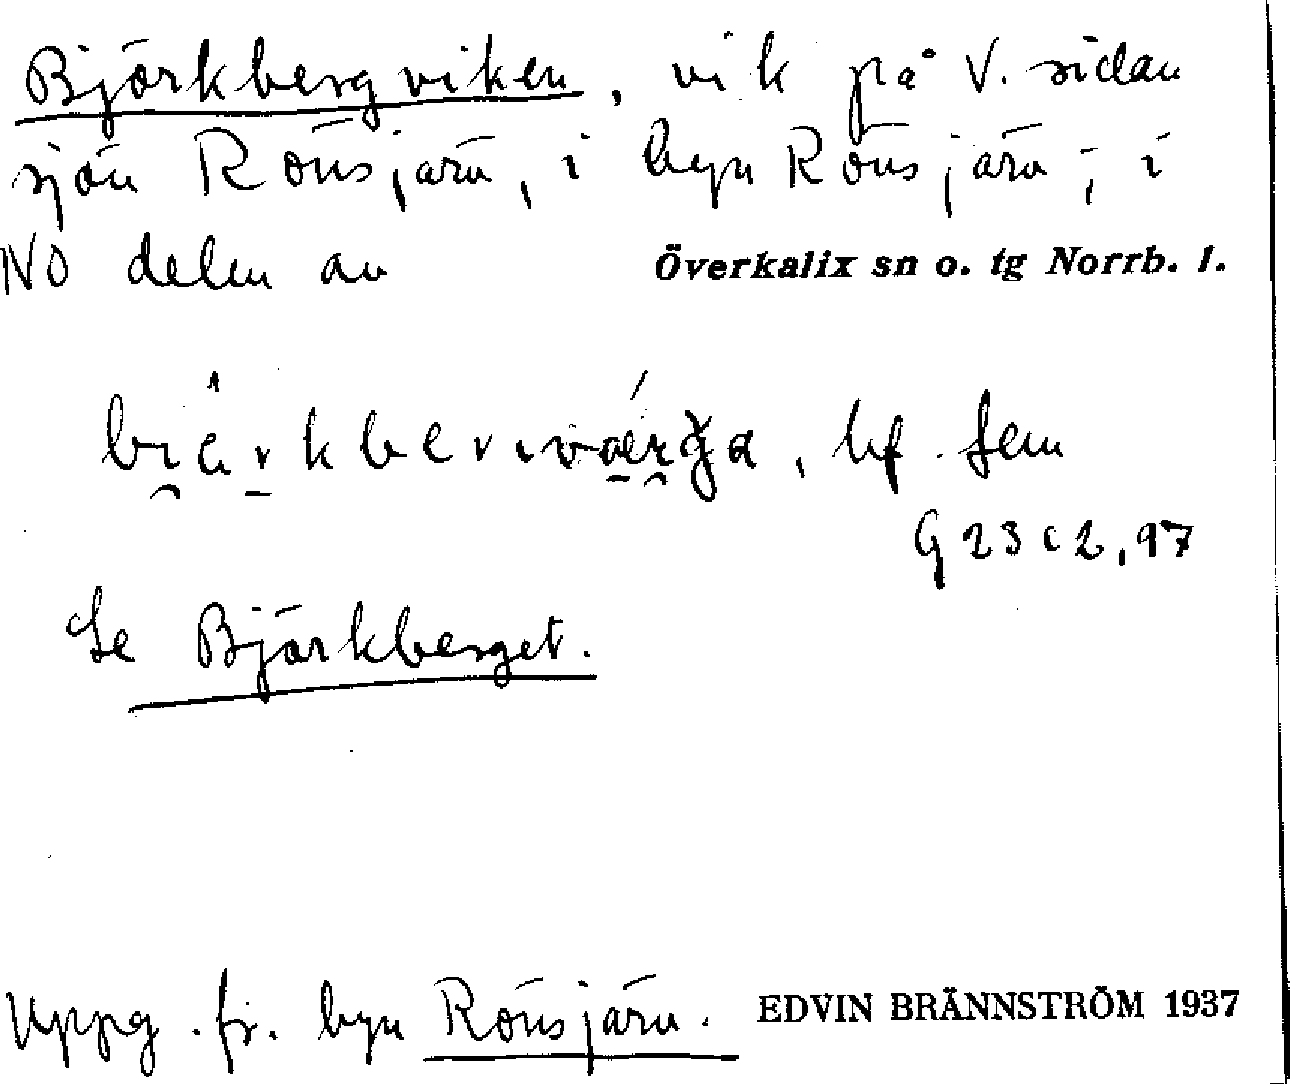 Björkbergviken, vik på V. sidan
sjön Rönsjärn, i byn Rönsjärn; i
NO delen av Överkalix sn o. tg Norrb. l.
bf. fem
G 23 c 2, 97
Se Björkberget.
Uppg. fr. byn Rönsjärn. EDVIN BRÄNNSTRÖM 1937